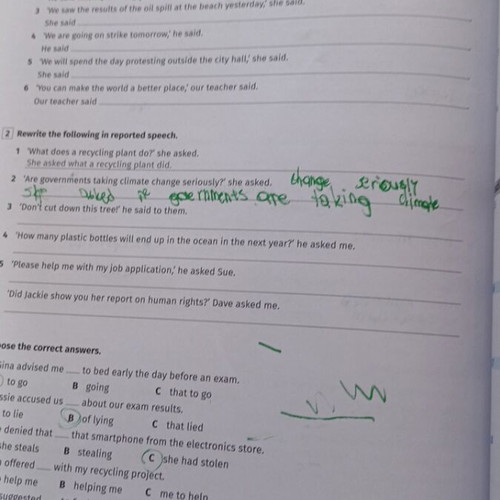 3 'We saw the results of the oil spill at the beach yesterday,' she said.
She said
4 'We are going on strike tomorrow,' he said.
He said
5 'We will spend the day protesting outside the city hall,' she said.
She said
6 'You can make the world a better place,' our teacher said.
Our teacher said
2 Rewrite the following in reported speech.
1 'What does a recycling plant do?' she asked.
She asked what a recycling plant did.
2 'Are governments taking climate change seriously?' she asked. change seriously
she asked if goernments are taking climate
3 'Don't cut down this tree!' he said to them.
4 'How many plastic bottles will end up in the ocean in the next year?' he asked me.
5 'Please help me with my job application,' he asked Sue.
'Did Jackie show you her report on human rights?' Dave asked me.
ose the correct answers.
Gina advised me to bed early the day before an exam.
to go B going C that to go
ssie accused us about our exam results.
to lie B of lying C that lied
e denied that that smartphone from the electronics store.
she steals B stealing C she had stolen
offered with my recycling project.
help me B helping me C me to help
suggested